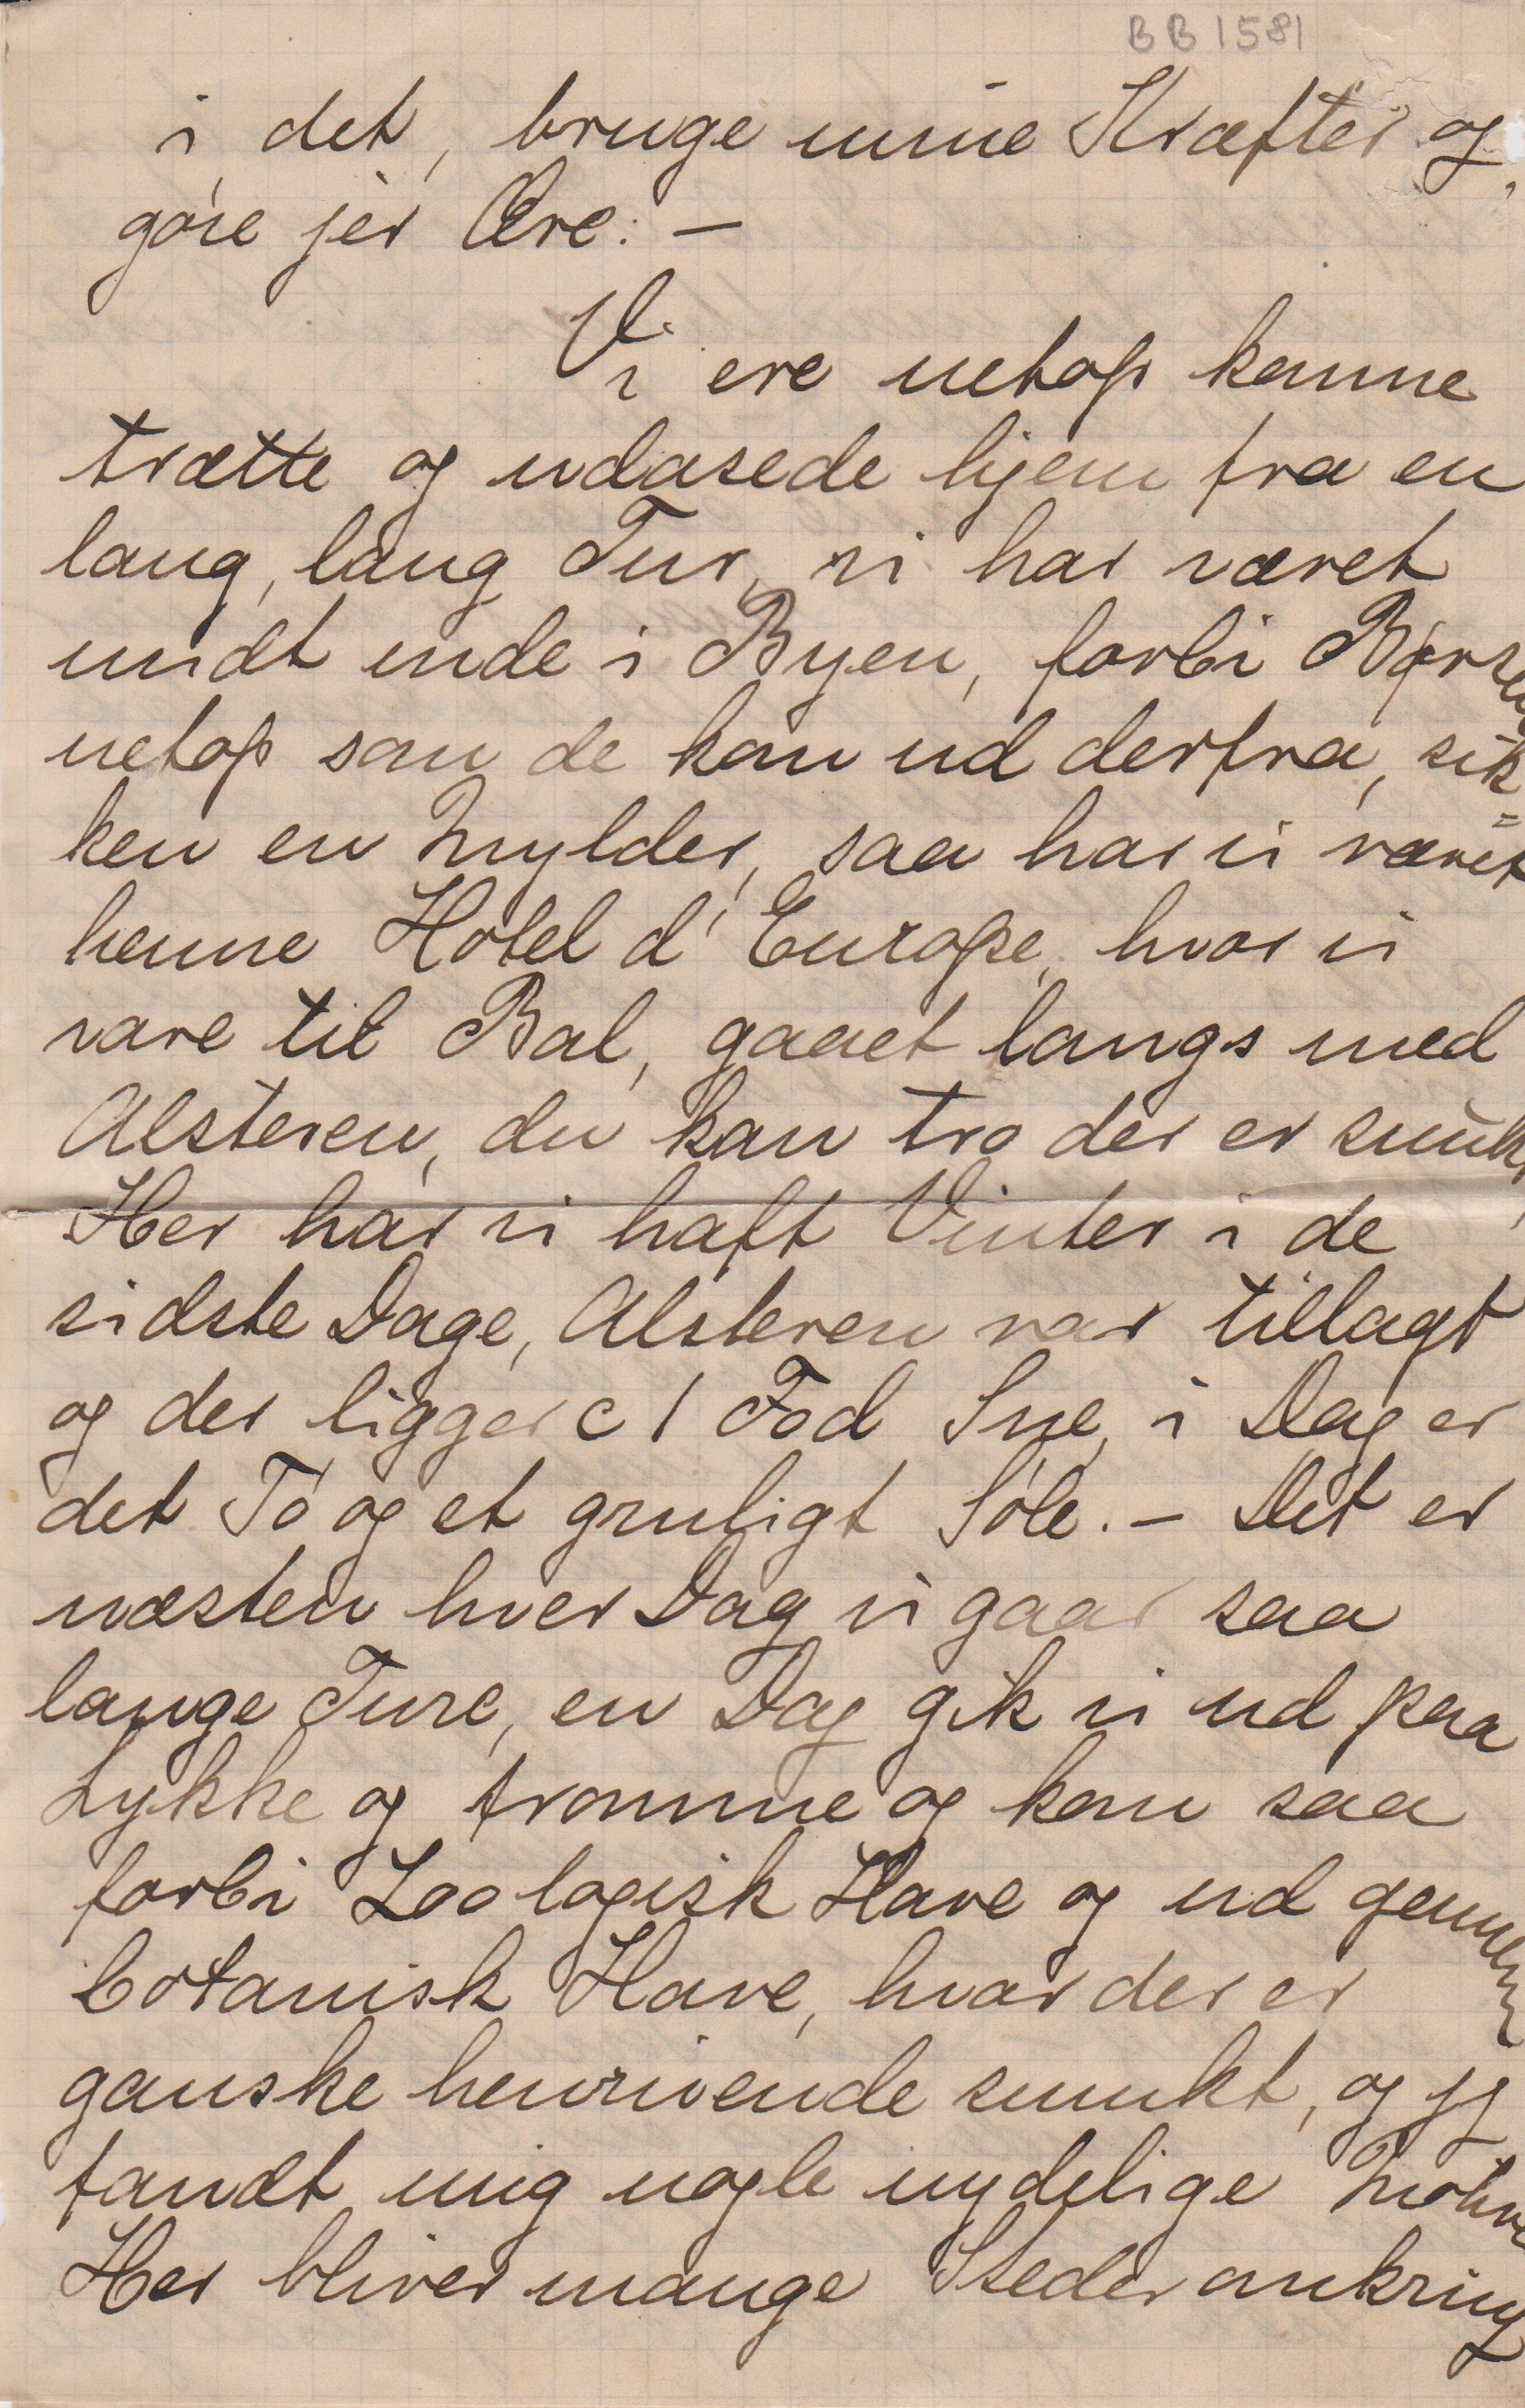 BB1581
i det, bruge mine Kræfter og
gøre jer Ære. –
Vi ere netop komne
trætte og udasede hjem fra en
lang, lang Tur, vi har været
midt inde i Byen, forbi Børsen
netop som de kom ud derfra, sik-
ken en Mylder, saa har vi været
henne Hotel d'Europe, hvor vi
vare til Bal, gaaet langs med
Alsteren, du kan tro der er smukt,
Her har vi haft Vinter i de
sidste Dage, Alsteren var tillagt
og der ligger c 1 Fod Sne, i Dag er
det Tø og et gruligt Søle. – Det er
næsten hver Dag vi gaar saa
lange Ture, en Dag gik vi ud paa
Lykke og fromme og kom saa
forbi Zoologisk Have og ud gennem
botanisk Have, hvor der er
ganske henrivende smukt, og jeg
fandt mig nogle nydelige Motiver
Her bliver mange Steder omkring